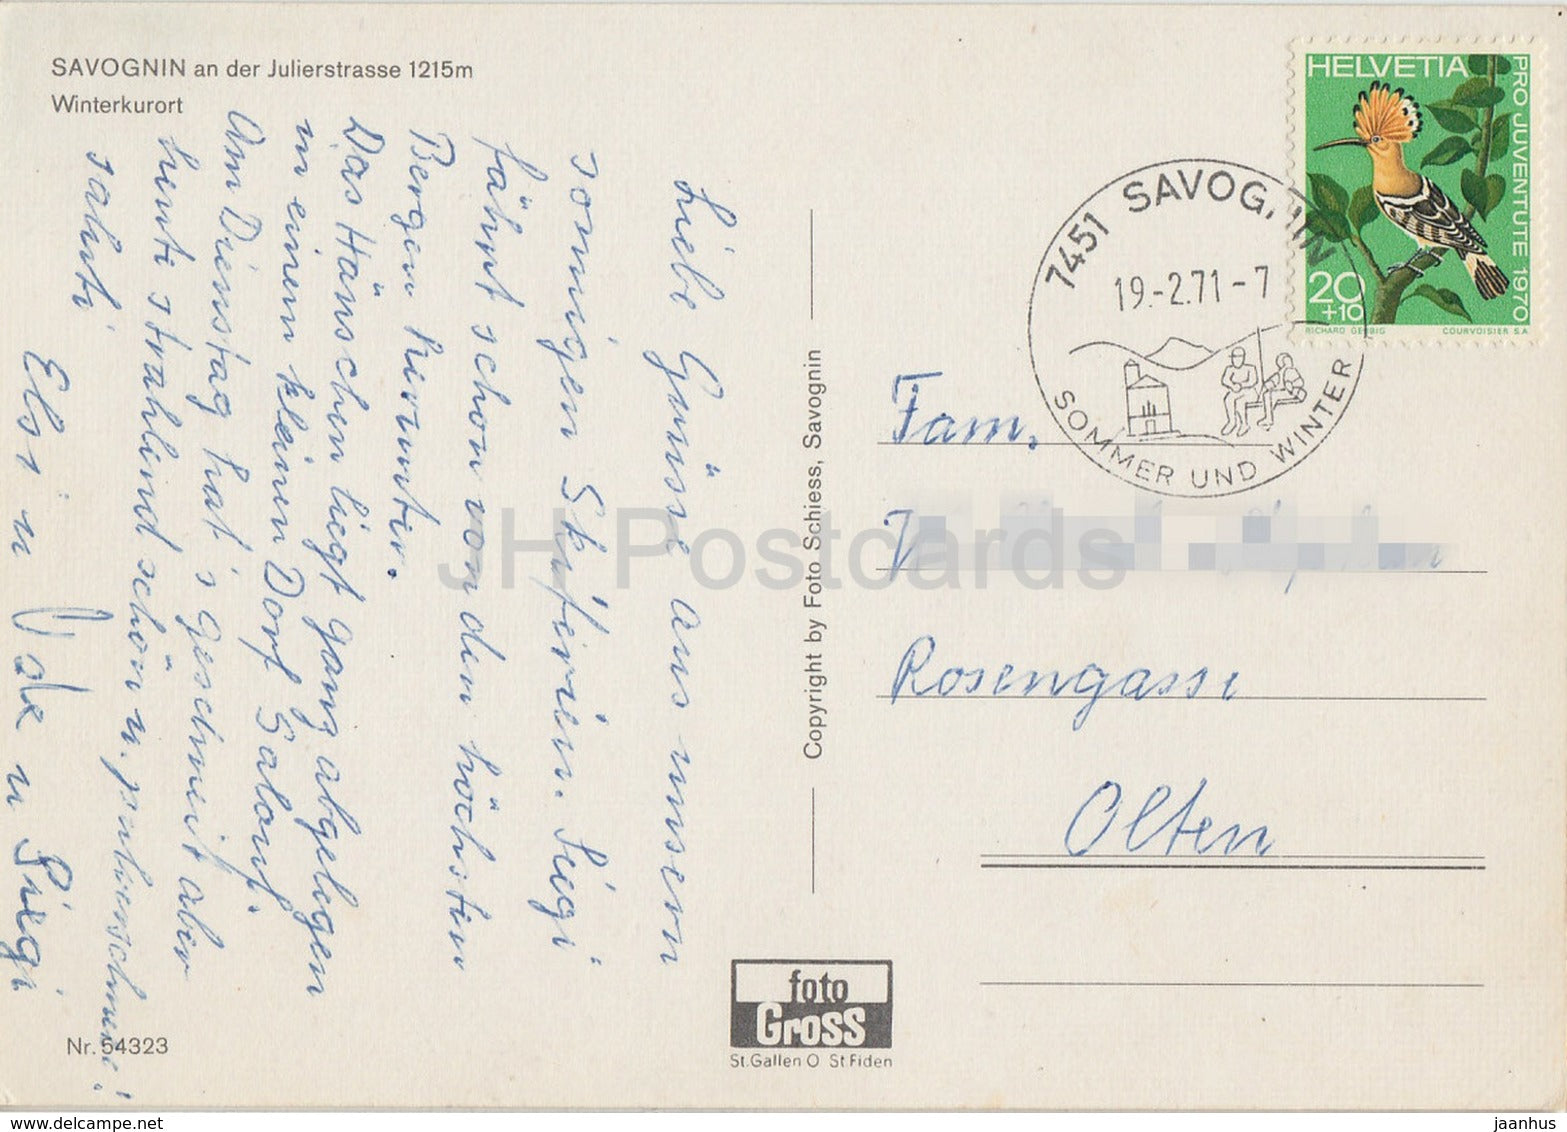 SAVOGNIN an der Julierstrasse 1215m
Winterkurort
Liebe Grüsse aus unsern
sonnigen Skiferien. Siegi
fährt schon von den höchsten
Bergen hinunter.
Das Häuschen liegt ganz abgelegen
in einem kleinen Dorf Salouf.
Am Dienstag hat's geschneit aber
heute strahlend schön u. pulverschnee!
Elsi u u Siegi
Nr. 54323
Copyright by Foto Schiess, Savognin
foto
Gross
St.Gallen O St Fiden
HELVETIA
PRO JUVENTUTE 1970
20
+10
RICHARD GERBIG
COURVOISIER S.A.
7451 SAVOGNIN
19.-2.71-7
SOMMER UND WINTER
Fam.
Rosengasse
Olten
JH Postcards
www.delcampe.net
jaanhus